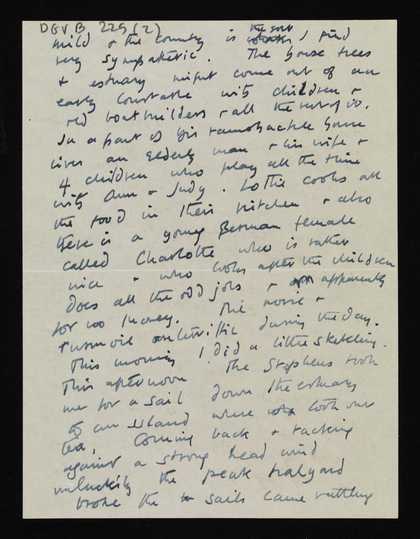 DGV.B 229 (2)
mild & the country is the sort I find
very sympathetic. The house trees
& estuary might come out of an
early Constable with children &
old boatbuilders & all the rest of it.
In a part of his ramshackle house
lives an elderly man & his wife &
4 children who play all the time
with Ann & Judy. Lottie cooks all
the food in their kitchen & also
there is a young German female
called Charlotte who is rather
nice & who looks after the children
does all the odd jobs & apparently
for no money. The noise &
turmoil are terrific during the day.
This morning I did a little sketching.
This afternoon The Stephens took
me for a sail down the estuary
to an island where we took our
tea. Coming back & tacking
against a strong head wind
unluckily the peak halyard
broke the sails came rattling